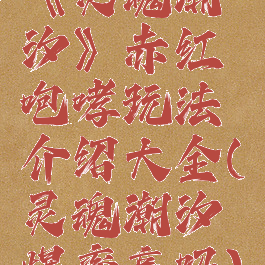 《灵魂潮
汐》赤红
咆哮玩法
介绍大全(
灵魂潮汐